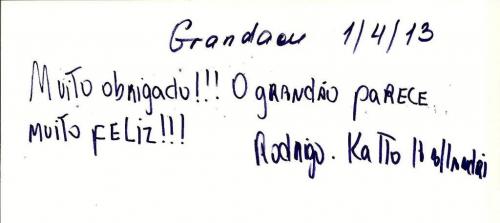 Grandaou 1/4/13
Muito obrigado!!! O grandão parece
muito feliz!!!
Rodrigo. Katto